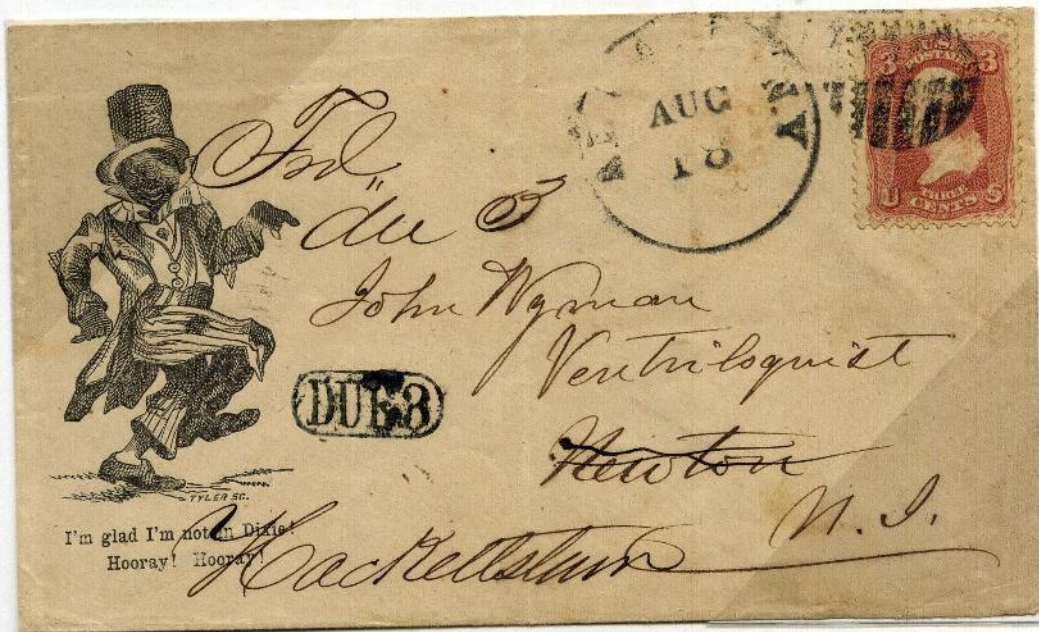 U.S.
POSTAGE
3 3
THREE
CENTS
U S
AUG
18
Fwd
due 3
John Wyman
Ventriloquist
Newton
N. J.
Hackettstown
DUE 3
TYLER SC.
I'm glad I'm not in Dixie!
Hooray! Hooray!